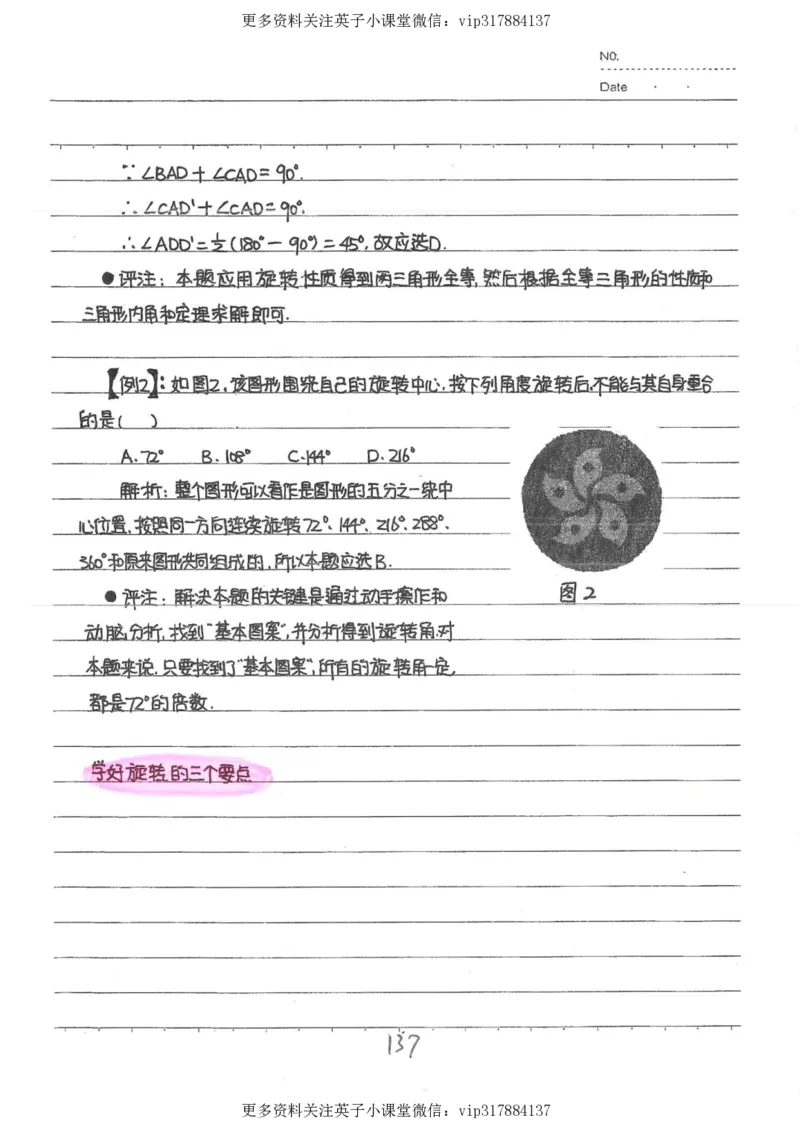 更多资料关注英子小课堂微信：vip317884137
NO.
Date
∵∠BAD+∠CAD=90°.
∴∠CAD'+∠CAD=90°.
∴∠ADD'=½(180°-90°)=45°,故应选D.
●评注：本题应用旋转性质得到两三角形全等,然后根据全等三角形的性质和
三角形内角和定理求解即可.
【例2】：如图2,该图形围绕自己的旋转中心,按下列角度旋转后,不能与其自身重合
的是( )
A.72° B.108° C.144° D.216°
解析：整个图形可以看作是图形的五分之一绕中
心位置,按照同一方向连续旋转72°、144°、216°、288°、
360°和原来图形共同组成的,所以本题应选B.
●评注：解决本题的关键是通过动手操作和
图2
动脑分析,找到"基本图案",并分析得到旋转角.对
本题来说,只要找到了"基本图案",所有的旋转角一定,
都是72°的倍数.
学好旋转的三个要点
137
更多资料关注英子小课堂微信：vip317884137